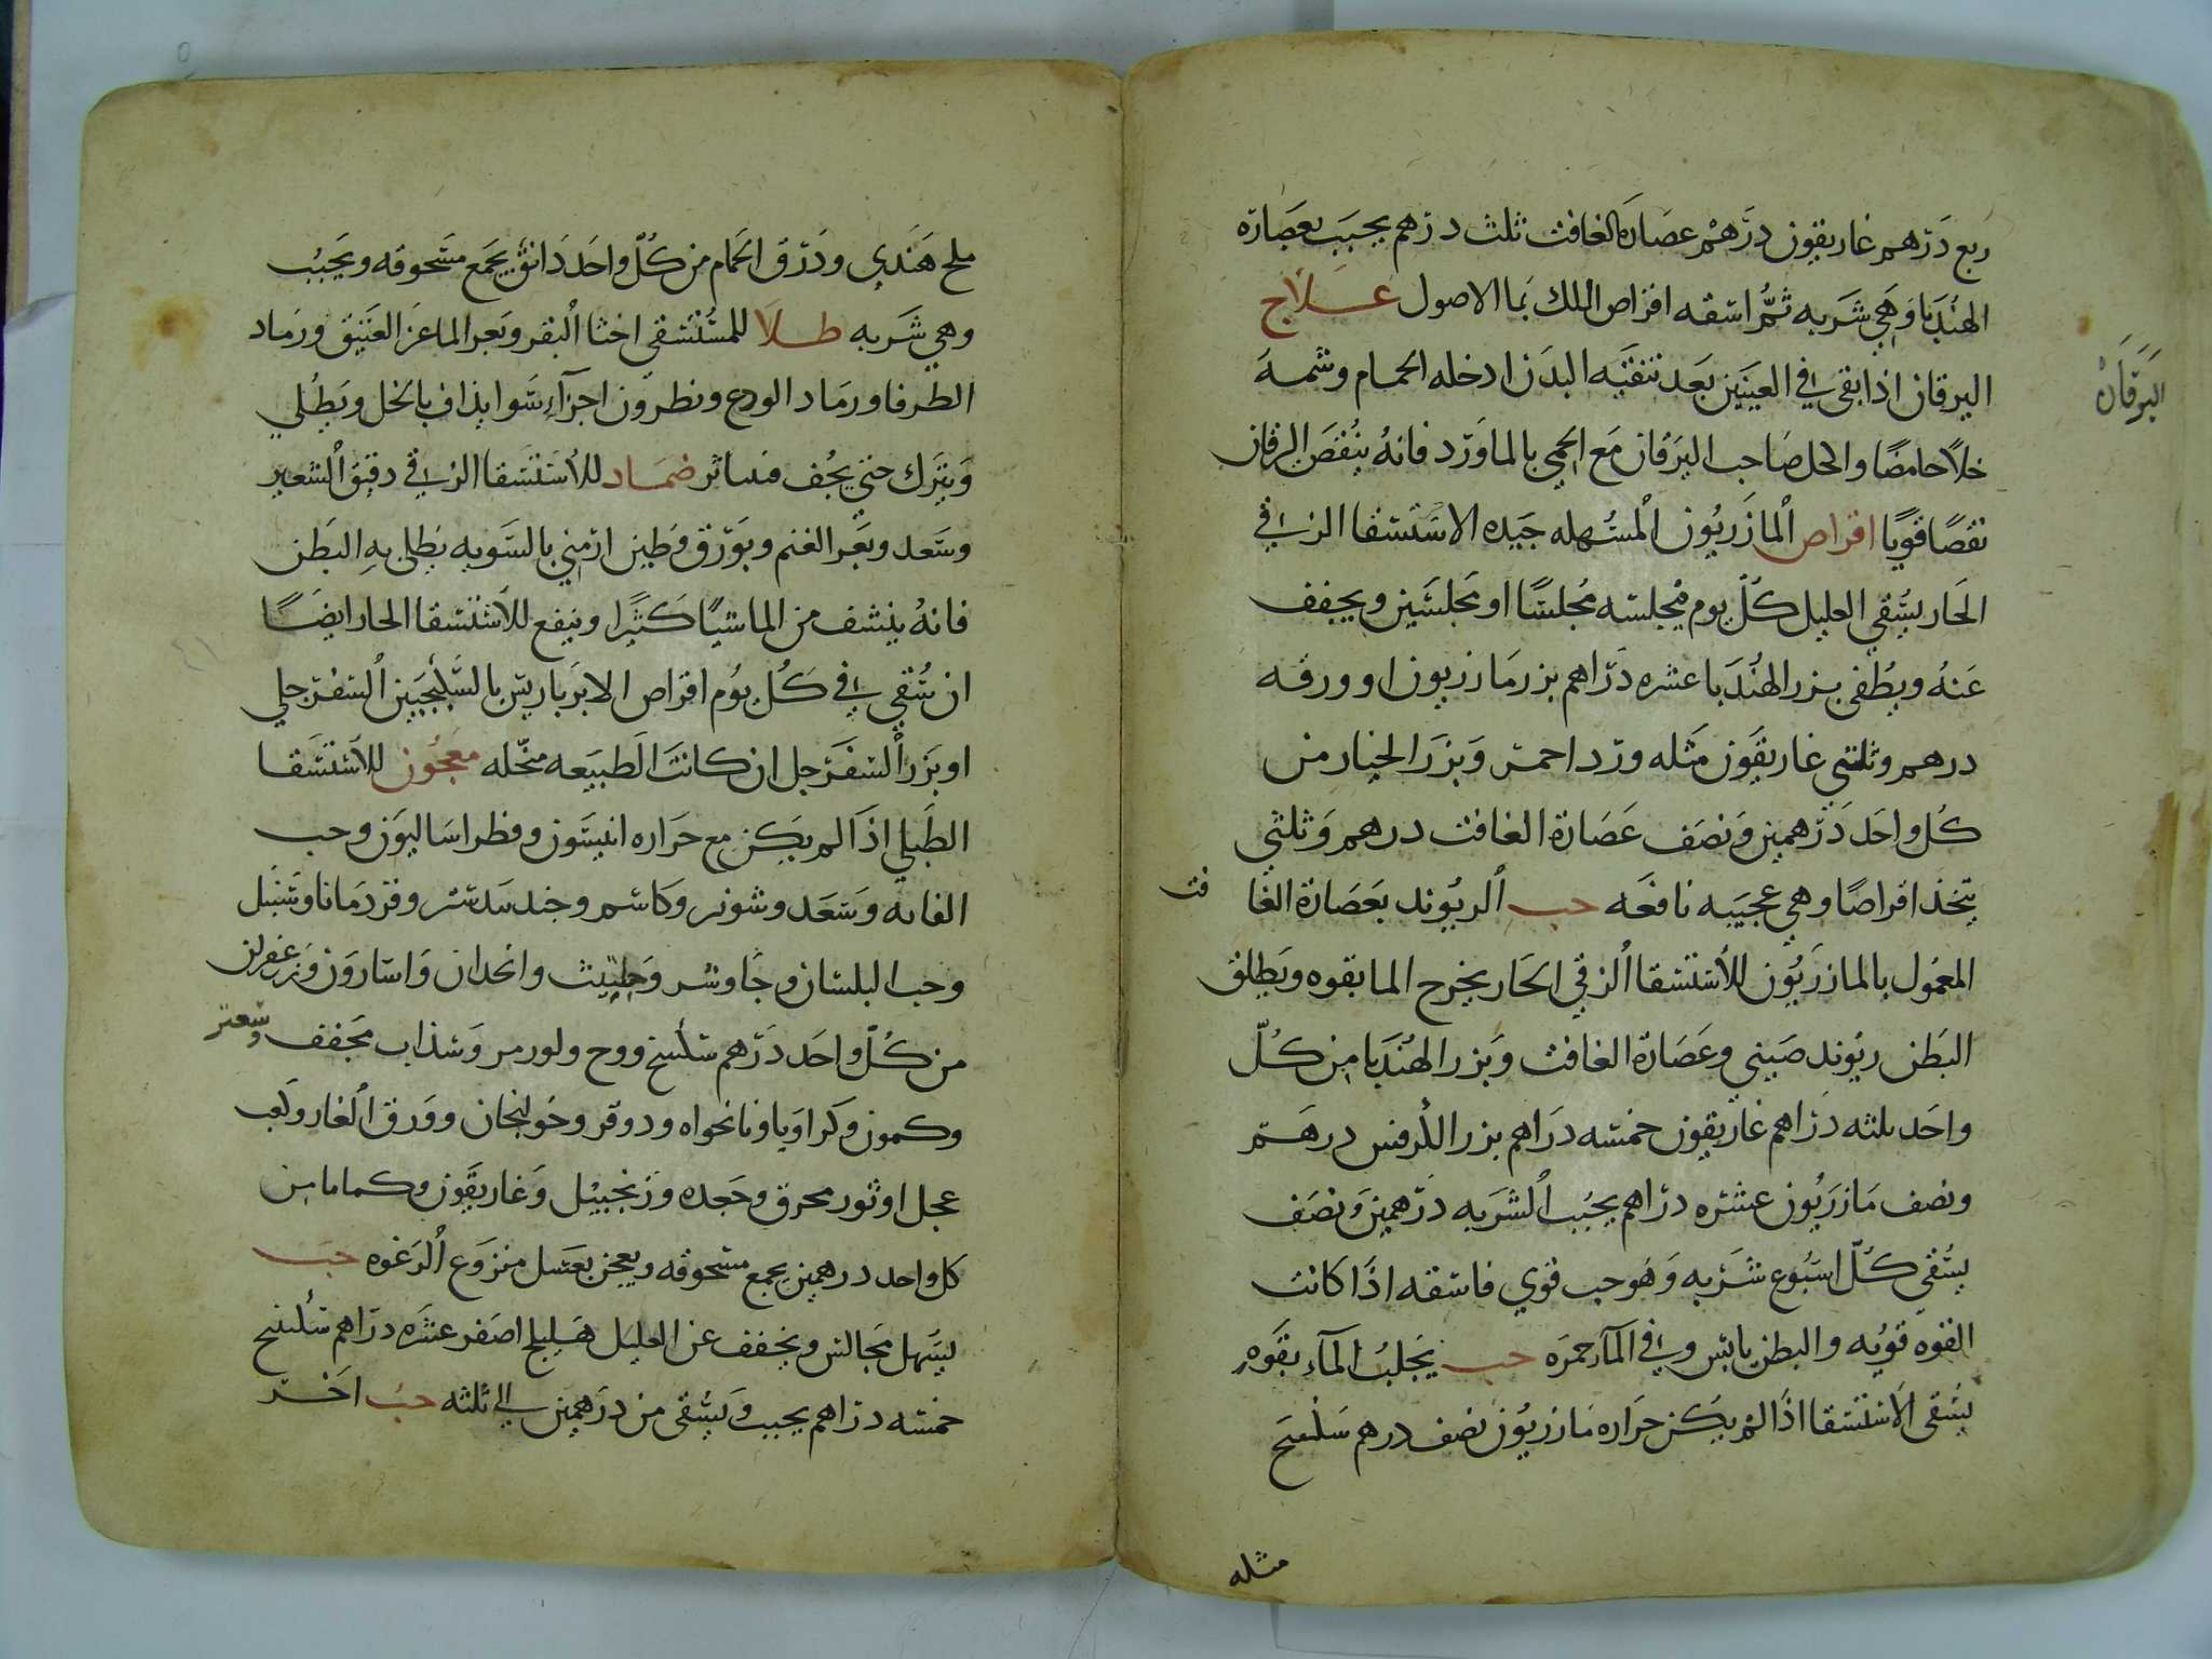 ربع درهم غاريقون درهم عصارة الغافت ثلث درهم يحبب بعصارة
الهندبا وهي شربه ثم اسقه اقراص اللك بما الاصول علاج
اليرقان
اليرقان اذا بقي في العينين بعد تنقيه البدن ادخله الحمام وشمه
خلاً حامضًا واكحل صاحب اليرقان مع الحمى بالماورد فانه ينقص اليرقان
نقصًا قويًا اقراص المازريون المسهله جيده الاستسقا الزقي
الحار يسقي العليل كل يوم مجلسًا او مجلسين ويجفف
عنه ويطفى بزر الهندبا عشره دراهم بزر مازريون او ورقه
درهم وثلثي غاريقون مثله ورد احمر وبزر الخيار من
كل واحد درهمين ونصف عصارة الغافت درهم وثلثي
يتخذ اقراصًا وهي عجيبه نافعه حب الريوند بعصارة الغا فت
المعمول بالمازريون للاستسقا الزقي الحار يخرج الما بقوه ويطلق
البطن ريوند صيني وعصارة الغافت وبزر الهندبا من كل
واحد ثلثه دراهم غاريقون خمسه دراهم بزر الكرفس درهم
ونصف مازريون عشره دراهم يحبب الشربه درهمين ونصف
يسقي كل اسبوع شربه وهو حب قوي فاسقه اذا كانت
القوه قويه والبطن يابس وفي الماء حمره حب يجلب الماء بقوه
يسقى الاستسقا اذا لم يكن حراره مازريون نصف درهم سكبينج
مثله
ملح هندي وذرق الحمام من كل واحد دانق يجمع مسحوقه ويحبب
وهي شربه طلا للمستسقي اخثا البقر وبعر الماعز العتيق ورماد
الطرفا ورماد الودع ونطرون اجزاء سوا يذاف بالخل ويطلي
ويترك حتي يجف ضماد للاستسقا الزقي دقيق الشعير
وسعد وبعر الغنم وبورق وطين ارمني بالسويه يطلى به البطن
فانه ينشف من الما شيًا كثيرا وينفع للاستسقا الحار ايضًا
ان سُقي في كل يوم اقراص الابرباريس بالسكنجبين السفرجلي
او بزر السفرجل ان كانت الطبيعه منحله معجون للاستسقا
الطبلي اذا لم يكن مع حراره انيسون وفطراساليون وحب
الغاره وسعد وشونيز وكاشم وجندبيدستر وقردمانا وسنبل
وحب البلسان وجاوشير وحلتيت وانجدان واسارون وزعفران
من كل واحد درهم سكبينج ووج ولوز مر وسذاب مجفف وسعتر
وكمون وكراويا ونانخواه ودوقو وخولنجان وورق الغار وكعب
عجل او ثور محرق وجعده وزنجبيل وغاريقون وكمامامن
كل واحد درهمين يجمع مسحوقه ويعجن بعسل منزوع الرغوه حب
يسهل مجالس ويخفف عن العليل هليلج اصفر عشره دراهم سكبينج
خمسه دراهم يحبب ويسقى من درهمين الى ثلثه حب اخر